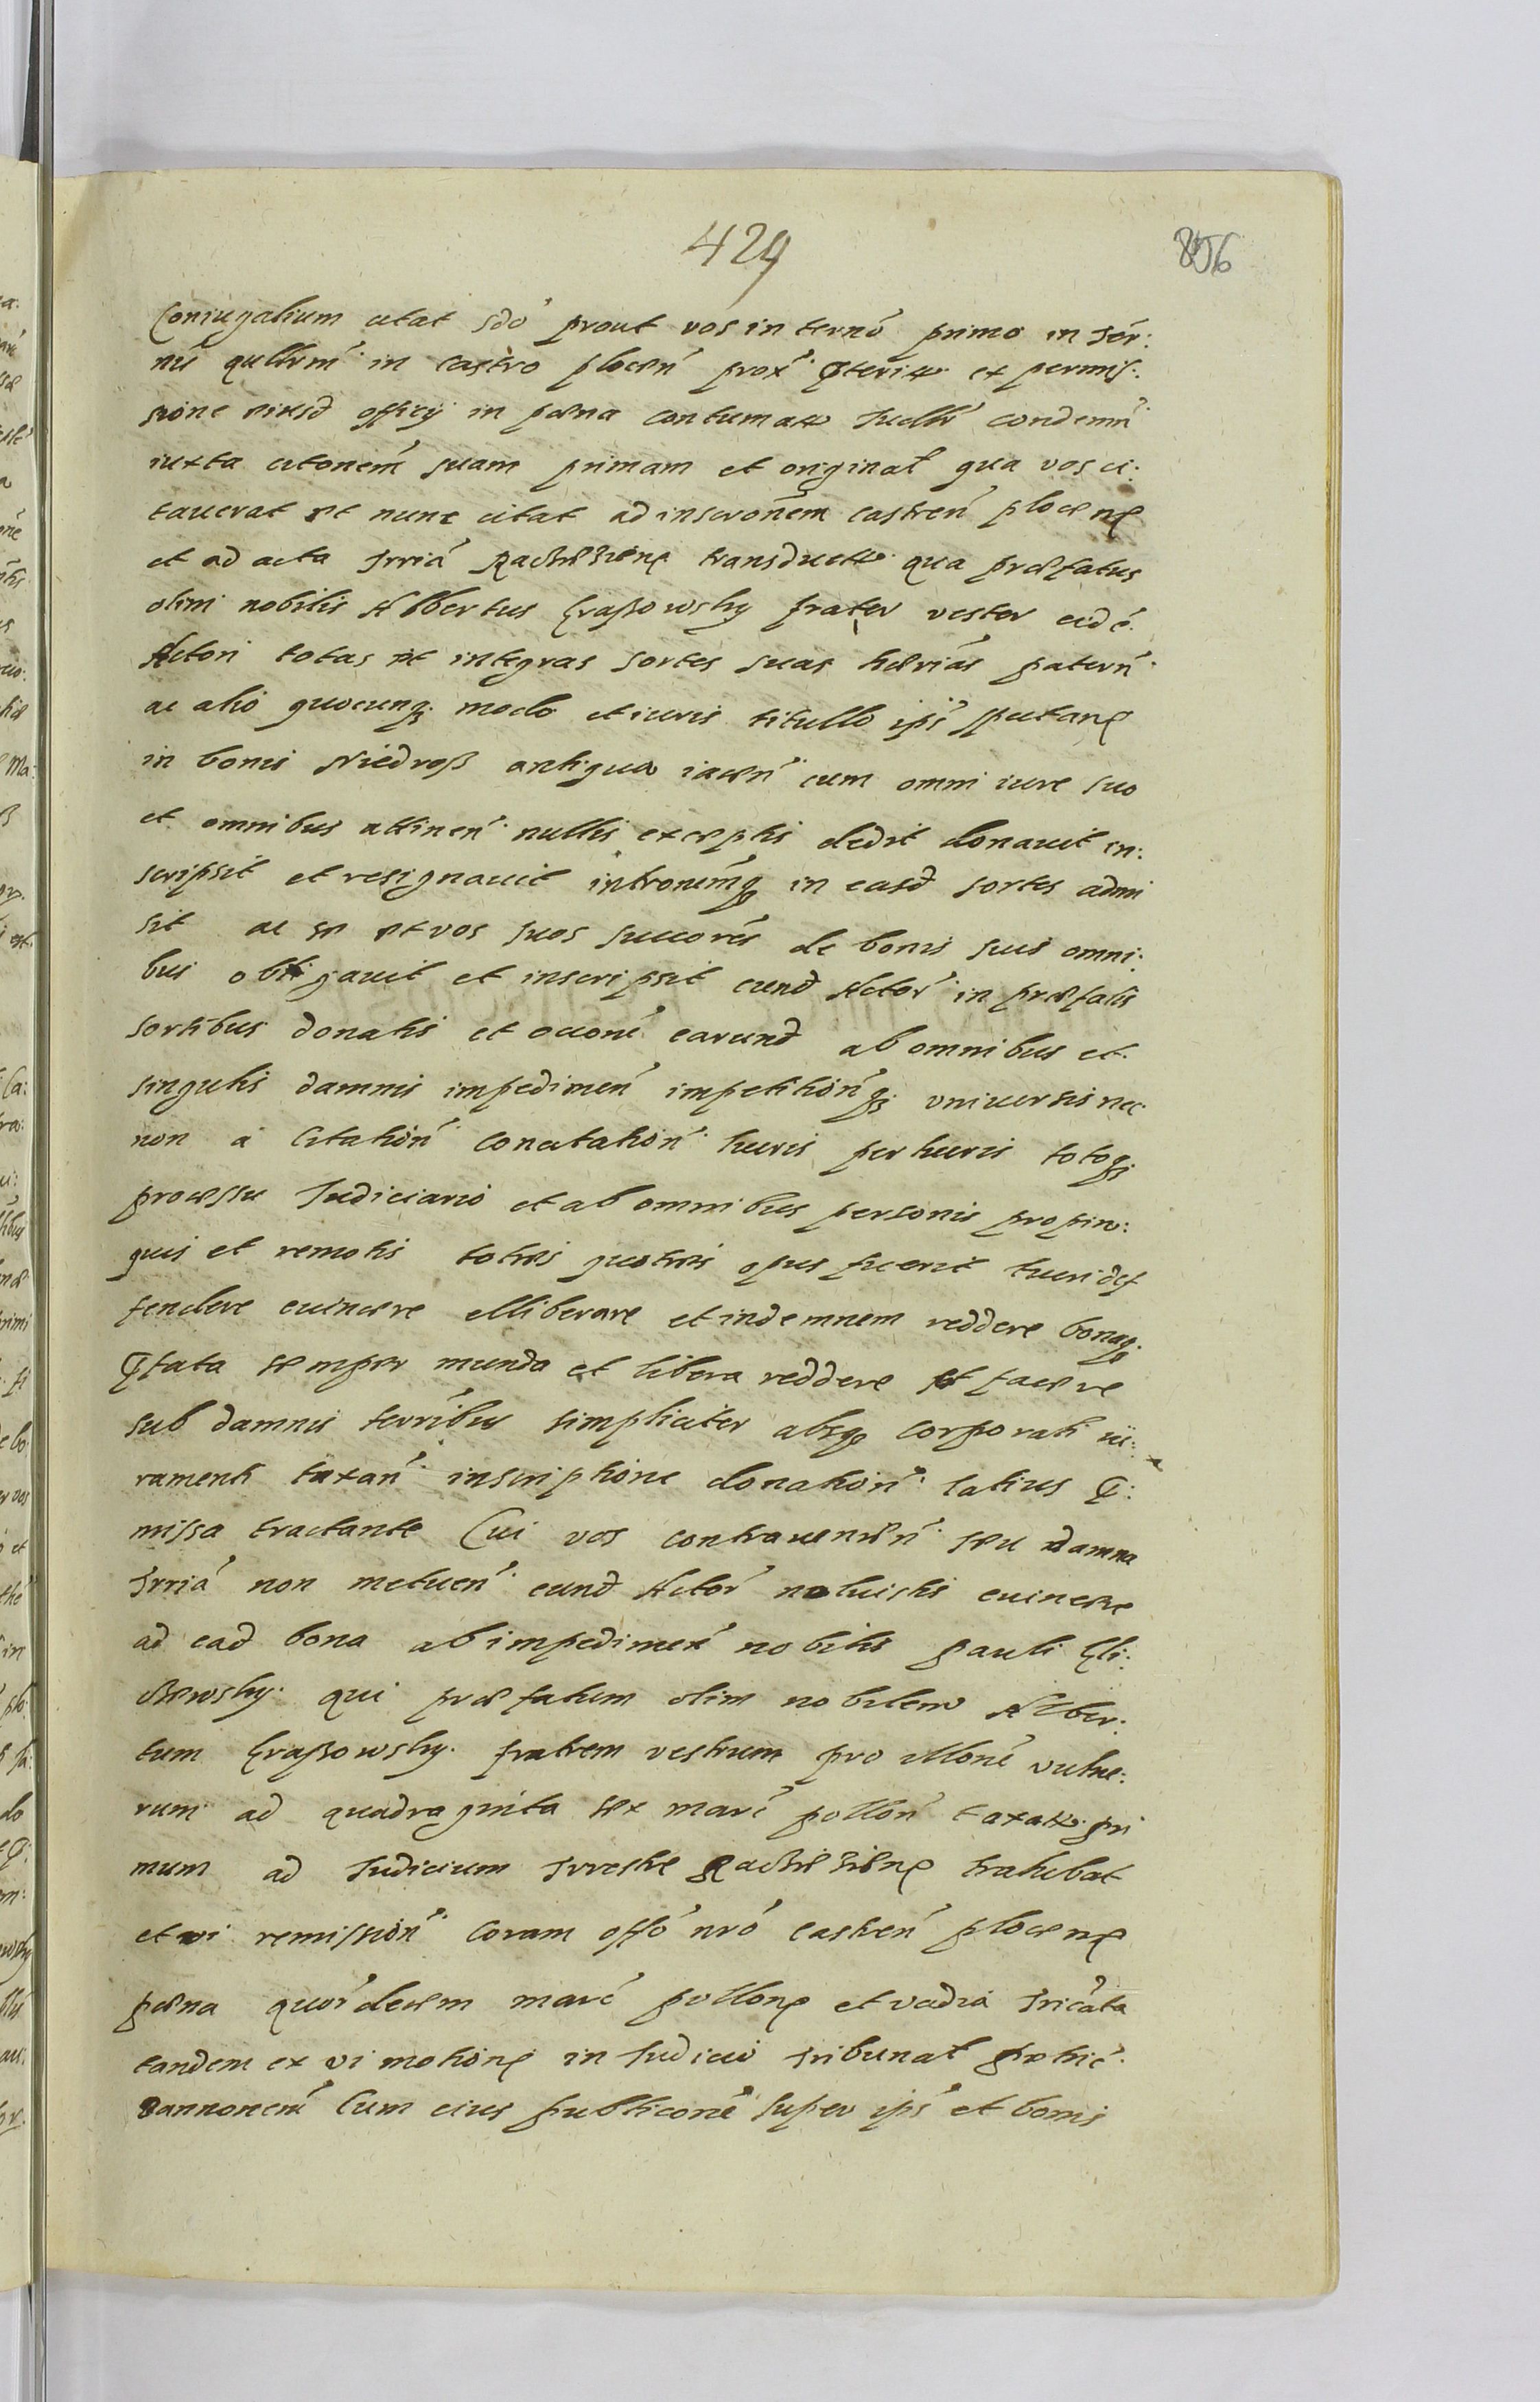 424
856
Coniugalium citat sdo prout vos in termo primo in Ter:
nis qullrm in castro plocen prox pteritt ex permis:
sione eiusd officij in poena contumatt Iudlr condemn
iuxta citonem suam primam et original qua vos ci:
tauerat et nunc citat ad inscronem castren plocen
et ad acta Trria Raciązien transductt qua praefatus
olim nobilis Albertus Graßowsky frater vester eide
Actori totas et integras sortes suas haerias patern
ac alio quocunq modo et iuris titullo ips sputan
in bonis Niedroß antiqua iacen cum omni iure suo
et omnibus attinen nullis exceptis dedit donauit in:
scripsit et resignauit intromq in easd sortes admi
sit ac se et vos suos succores de bonis suis omni:
bus obligauit et inscripsit eund Actor in praefatis
sortibus donatis et occone earund ab omnibus et
singulis damnis impedimen impetitionq vniuersis nec
non a Citation concitation Iuris perIuris totoq
processu Iudiciario et ab omnibus personis propin:
quis et remotis toties quoties opus fuerit tueri def
fendere euincere elliberare et indemnem reddere bonaq
pfata semper munda et libera reddere et facere
sub damnis terribus simpliciter absq corporali iu:
ramenti taxan inscriptione donation latius p:
missa tractante Cui vos contrauenien seu damna
Trria non metuen eund Actor noluistis euincere
ad ead bona ab impedimen nobilis Pauli Gli:
sky qui praefatum olim nobilem Alber:
tum Graßowsky fratrem vestrum pro illone vulne:
rum ad quadraginta sex marc pollon taxatt pri
mum ad Iudicium Trrestre Raciązien trahebat
et vi remission coram offo nro castren plocen
poena quordecem marc pollon et vadia Tricata
tandem ex vi motion in Iudicio Tribunal Petric
Bannonem cum eius publicone super ips et bonis